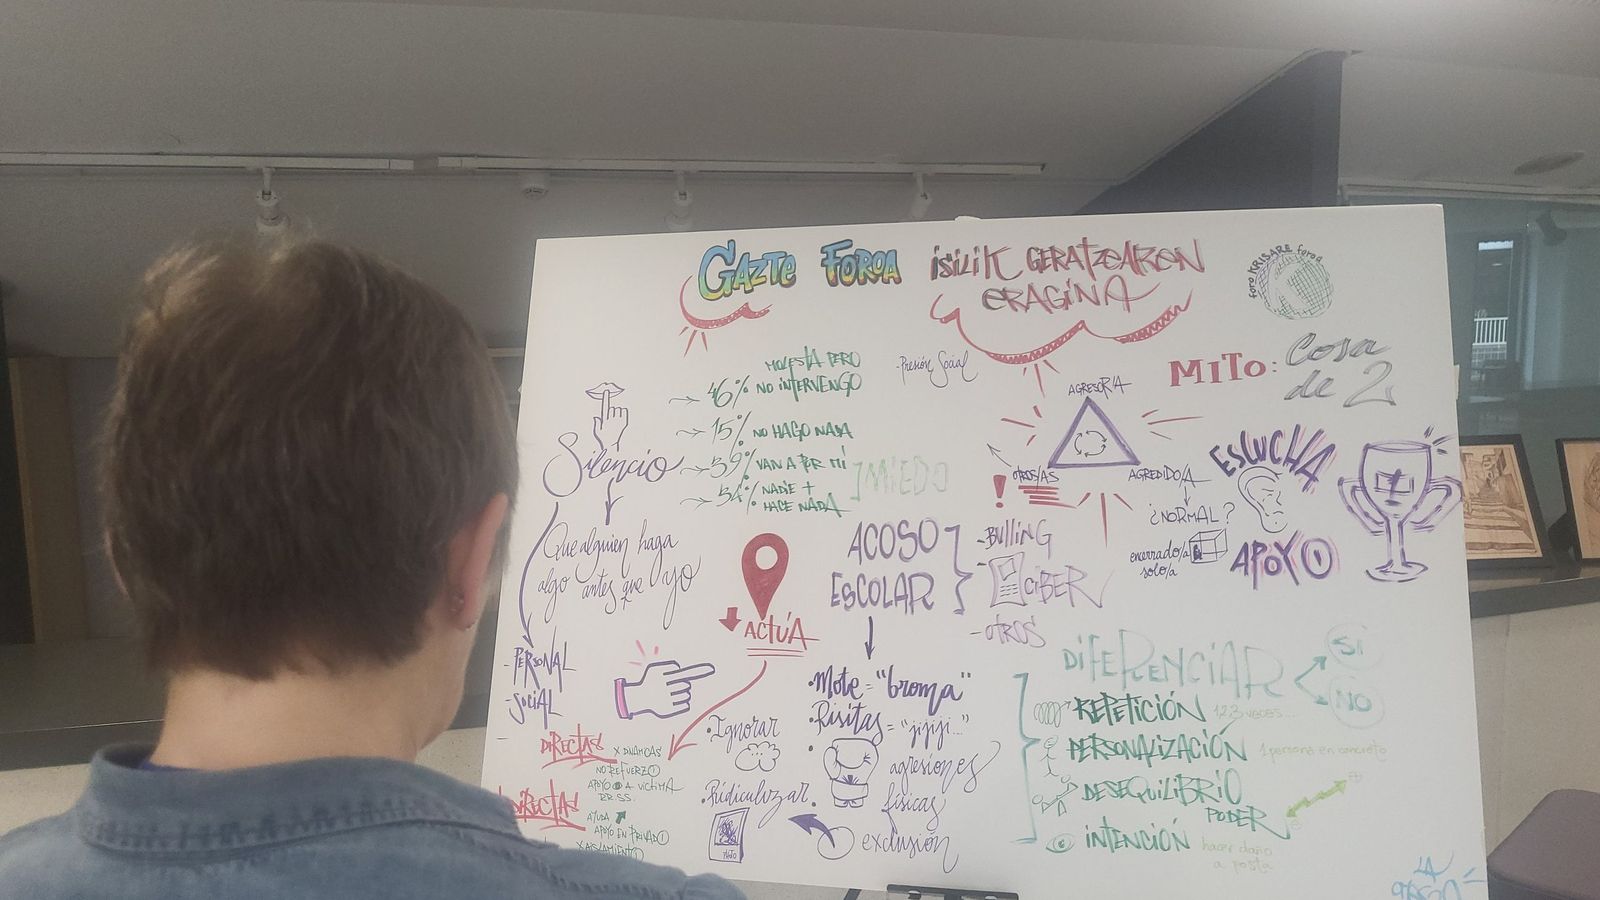 GAZTE FOROA ISILIK GERATZEAREN
ERAGINA
foro KRISARE foroa
MITO: Cosa
de 2
MOLESTA PERO
46% NO INTERVENGO
15% NO HAGO NADA
39% VAN A POR MI
34% NADIE +
HACE NADA
MIEDO
-Presión Social
Silencio
Que alguien haga
algo antes que
yo
- PERSONAL
- SOCIAL
AGRESOR/A
OTROS/AS
AGREDIDO/A
¿NORMAL?
encerrado/a
solo/a
ESCUCHA
APOYO
ACOSO
ESCOLAR
- BULLING
- CIBER
- OTROS
ACTÚA
DIRECTAS
X DINÁMICAS
NO REFUERZO
APOYO A VICTIMA
RR.SS.
DIRECTAS
AYUDA
APOYO EN PRIVADO
X AISLAMIENTO
• Mote = "broma"
• Risitas = "jijiji..."
• agresiones
físicas
exclusión
• Ignorar
• Ridiculizar
DIFERENCIAR
SI
NO
REPETICIÓN 1 2 3 veces...
PERSONALIZACIÓN 1 persona en concreto
DESEQUILIBRIO
PODER
INTENCIÓN hacer daño
a posta